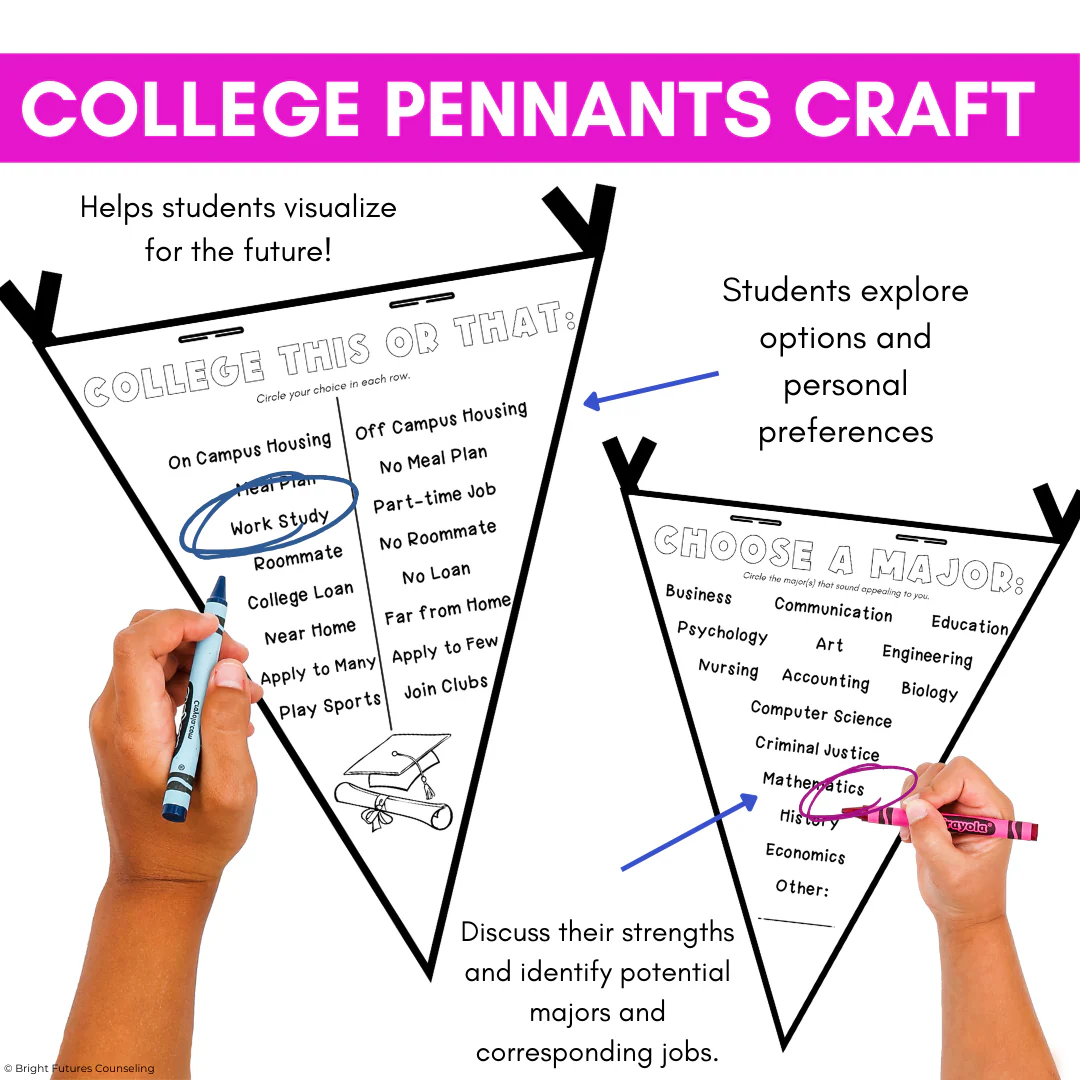 COLLEGE PENNANTS CRAFT
Helps students visualize
for the future!
COLLEGE THIS OR THAT:
Circle your choice in each row.
On Campus Housing
Off Campus Housing
Meal Plan
No Meal Plan
Work Study
Part-time Job
Roommate
No Roommate
College Loan
No Loan
Near Home
Far from Home
Apply to Many
Apply to Few
Play Sports
Join Clubs
Students explore
options and
personal
preferences
CHOOSE A MAJOR:
Circle the major(s) that sound appealing to you.
Business Communication Education
Psychology Art Engineering
Nursing Accounting Biology
Computer Science
Criminal Justice
Mathematics
History
Economics
Other:
Discuss their strengths
and identify potential
majors and
corresponding jobs.
© Bright Futures Counseling